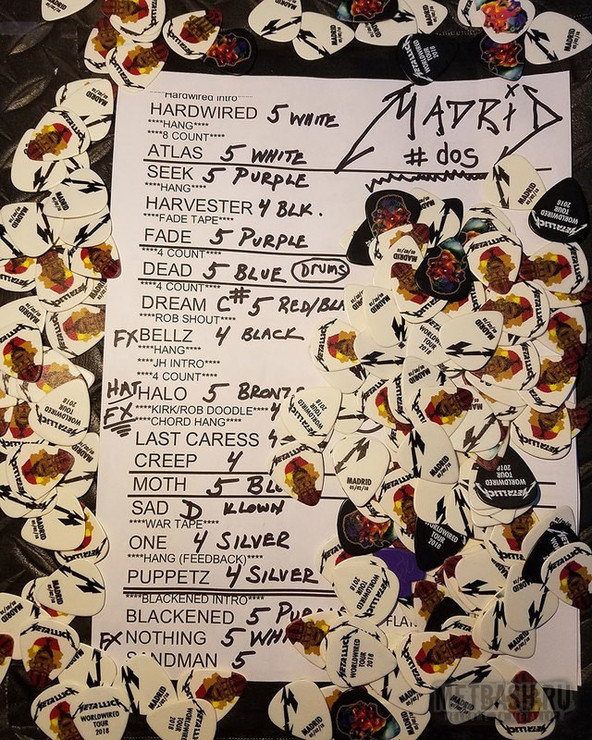 ****Hardwired intro****
HARDWIRED 5 WHITE
****HANG****
****8 COUNT****
MADRID
# dos
ATLAS 5 WHITE
SEEK 5 PURPLE
****HANG****
HARVESTER 4 BLK.
****FADE TAPE****
FADE 5 PURPLE
****4 COUNT****
DEAD 5 BLUE DRUMS
****4 COUNT****
DREAM C# 5 RED/BLA
****ROB SHOUT****
FX BELLZ 4 BLACK
****HANG****
****JH INTRO****
****4 COUNT****
HAT HALO 5 BRONZE
FX ****KIRK/ROB DOODLE****4
****CHORD HANG****
LAST CARESS 4
CREEP 4
MOTH 5 BLU
SAD D KLOWN
****WAR TAPE****
ONE 4 SILVER
****HANG (FEEDBACK)****
PUPPETZ 4 SILVER
****BLACKENED INTRO****
BLACKENED 5 PURPL
FX NOTHING 5 WHI
SANDMAN 5
METALLICA
WORLDWIRED
TOUR
2018
MADRID
METBASH.RU